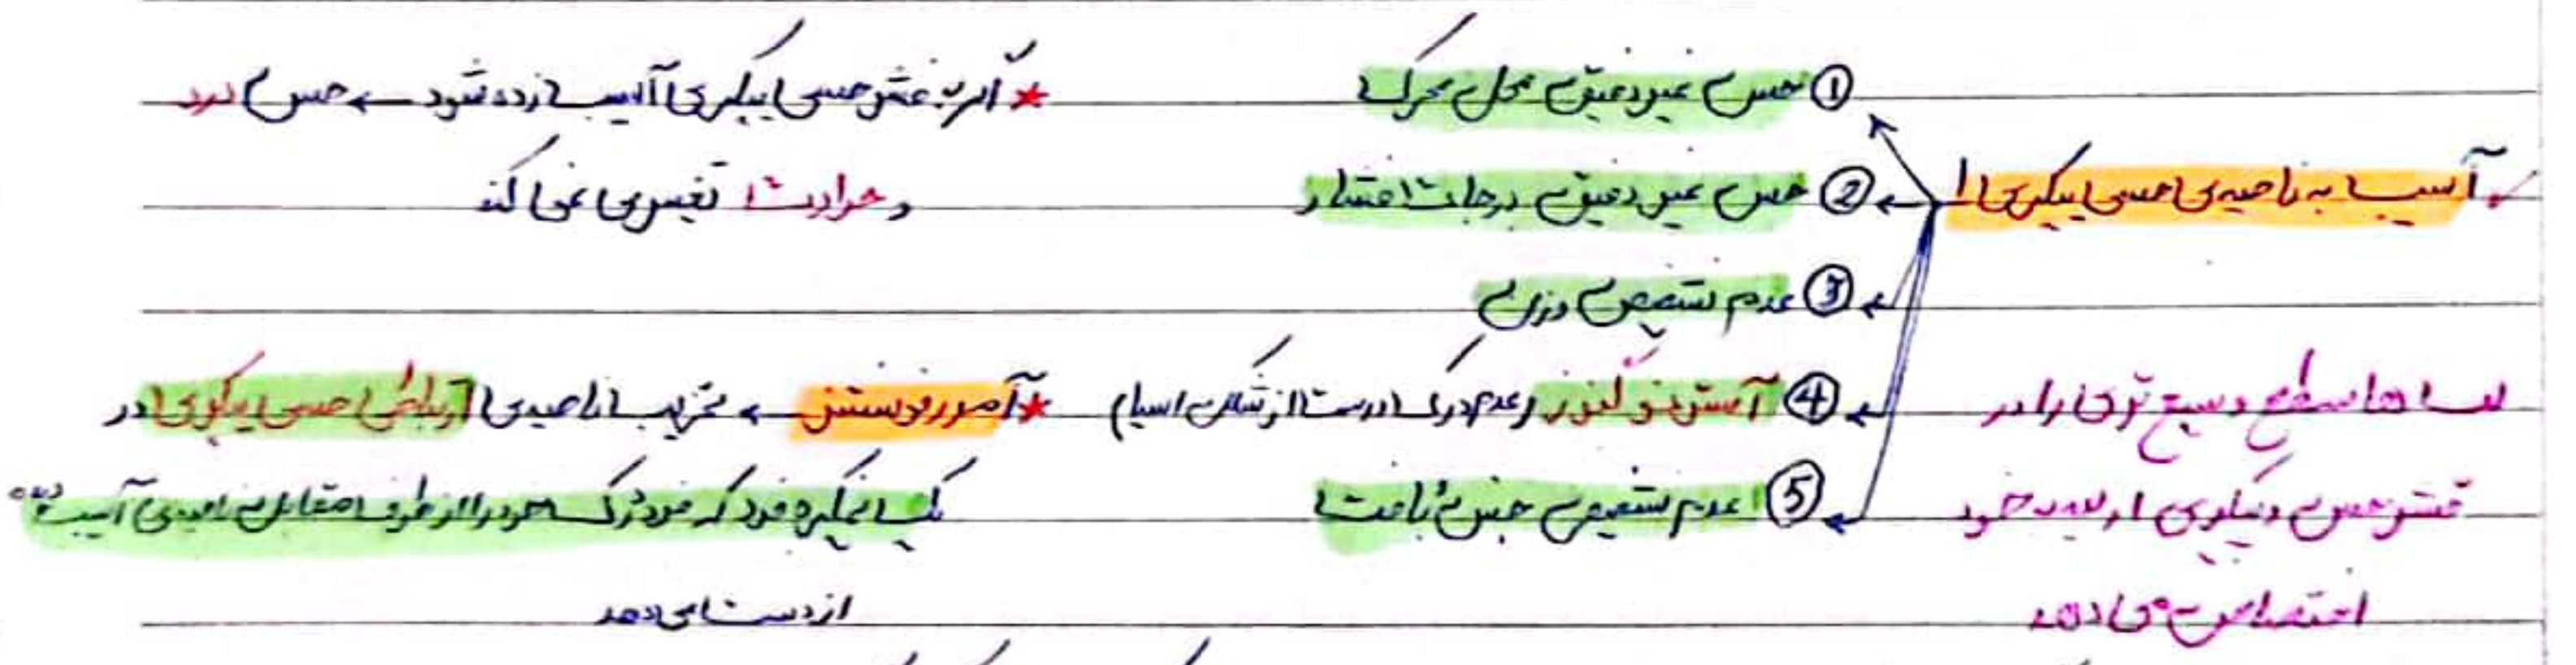 آسیب به ناحیه‌ی حسی پیکری ۱
① حس غیر دقیق محل محرک
② حس غیر دقیق درجات فشار
③ عدم تشخیص وزن
④ آسترئوگنوز (عدم درک درست از شکل اسیا)
⑤ عدم تشخیص جنس بافت
لب ها سطح وسیع تری را در
قشر حسی پیکری از لب خود
اختصاص می دهد
* اگر به قشر حسی پیکری آسیب زده شود ← حس درد
و حرارت تغییری نمی کند
* آمورفوسنتز ← تخریب ناحیه‌ی ارتباطی حسی پیکری در
یک نیمکره فرد که فرد درک خود را از طرف مقابل ناحیه‌ی آسیب دیده
از دست می دهد